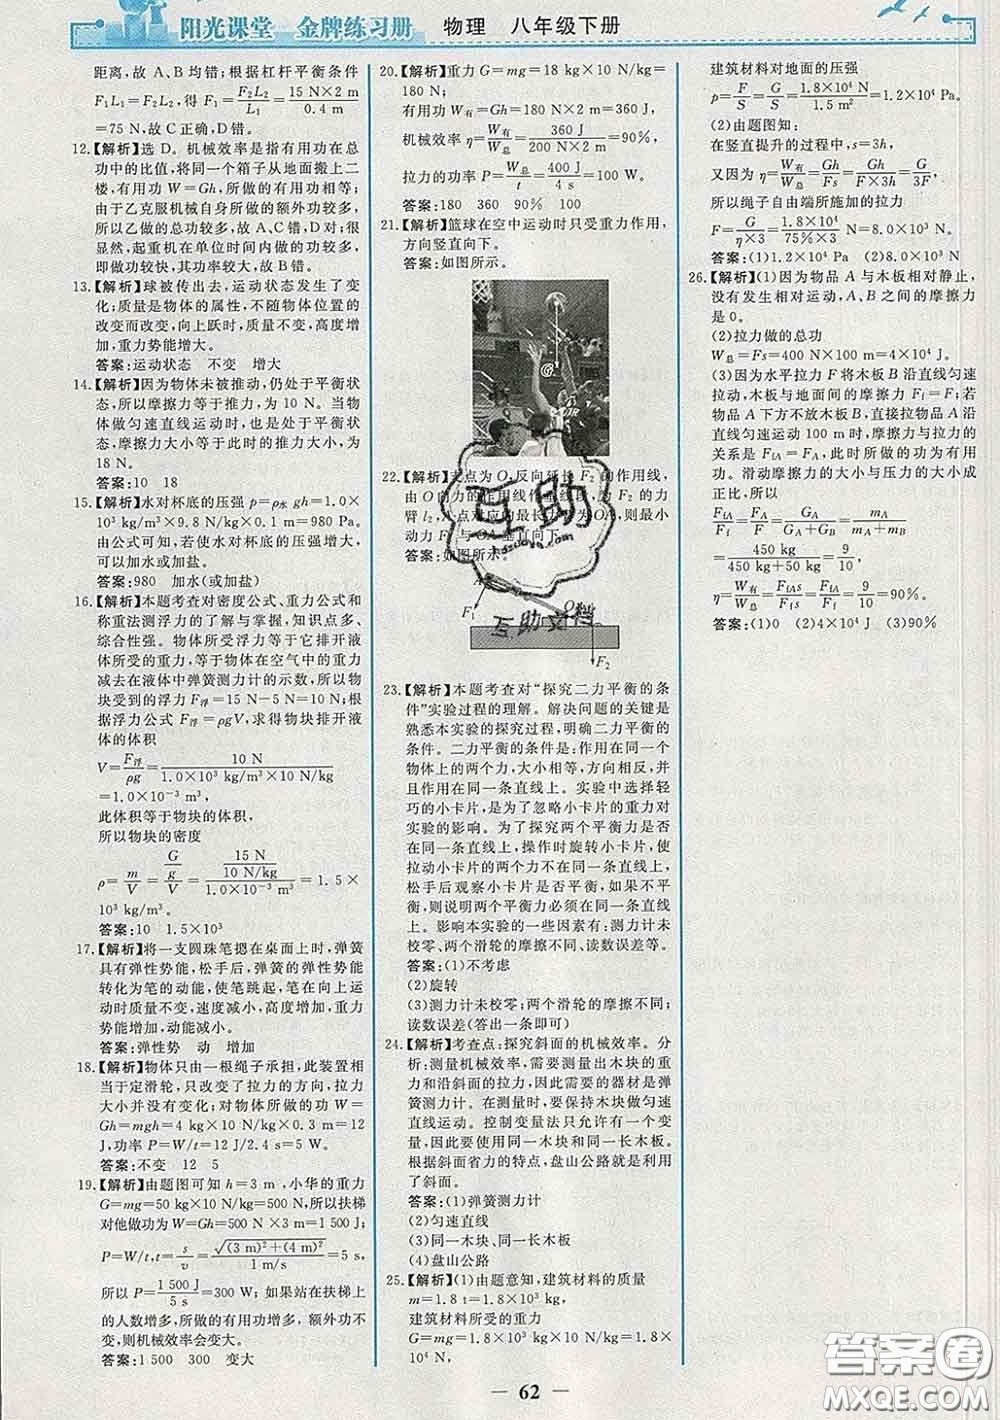 阳光课堂 金牌练习册 物理 八年级下册
距离,故 A、B 均错;根据杠杆平衡条件
F₁L₁=F₂L₂,得 F₁=F₂L₂/L₁=15 N×2 m/0.4 m
=75 N,故 C 正确,D 错。
12.【解析】选 D。机械效率是指有用功在总
功中的比值,将同一个箱子从地面搬上二
楼,有用功 W=Gh,所做的有用功相等;
由于乙克服机械自身所做的额外功较多,
所以乙做的总功较多,故 A、C 错,D 对;很
显然,起重机在单位时间内做的功较多,
即做功较快,其功率较大,故 B 错。
13.【解析】球被传出去,运动状态发生了变
化;质量是物体的属性,不随物体位置的
改变而改变,向上跃时,质量不变,高度增
加,重力势能增大。
答案:运动状态 不变 增大
14.【解析】因为物体未被推动,仍处于平衡状
态,所以摩擦力等于推力,为 10 N。当物
体做匀速直线运动时,也是处于平衡状
态,摩擦力大小等于此时的推力大小,为
18 N。
答案:10 18
15.【解析】水对杯底的压强 p=ρ水 gh=1.0×
10³ kg/m³×9.8 N/kg×0.1 m=980 Pa。
由公式可知,若使水对杯底的压强增大,
可以加水或加盐。
答案:980 加水(或加盐)
16.【解析】本题考查对密度公式、重力公式和
称重法测浮力的了解与掌握,知识点多、
综合性强。物体所受浮力等于它排开液
体所受的重力,等于物体在空气中的重力
减去在液体中弹簧测力计的示数,所以物
块受到的浮力 F浮=15 N−5 N=10 N;
根据浮力公式 F浮=ρgV,求得物块排开液
体的体积
V=F浮/ρg=10 N/(1.0×10³ kg/m³×10 N/kg)
=1.0×10⁻³ m³,
此体积等于物块的体积,
所以物块的密度
ρ=m/V=(G/g)/V=(15 N/10 N/kg)/(1.0×10⁻³ m³)=1.5×
10³ kg/m³。
答案:10 1.5×10³
17.【解析】将一支圆珠笔摁在桌面上时,弹簧
具有弹性势能,松手后,弹簧的弹性势能
转化为笔的动能,使笔跳起,笔在向上运
动时质量不变,速度减小,高度增加,重力
势能增加,动能减小。
答案:弹性势 动 增加
18.【解析】物体只由一根绳子承担,此装置相
当于定滑轮,只改变了拉力的方向,拉力
大小并没有变化;对物体所做的功 W=
Gh=mgh=4 kg×10 N/kg×0.3 m=12
J,功率 P=W/t=12 J/2.4 s=5 W。
答案:不变 12 5
19.【解析】由题图可知 h=3 m,小华的重力
G=mg=50 kg×10 N/kg=500 N,所以扶梯
对他做功为 W=Gh=500 N×3 m=1 500 J;
P=W/t,t=s/v=√((3 m)²+(4 m)²)/(1 m/s)=5 s,
所以 P=1 500 J/5 s=300 W;如果站在扶梯上
的人数增多,所做的有用功增多,额外功不
变,则机械效率会变大。
答案:1 500 300 变大
20.【解析】重力 G=mg=18 kg×10 N/kg=
180 N;
有用功 W有=Gh=180 N×2 m=360 J,
机械效率 η=W有/W总=360 J/(200 N×2 m)=90%,
拉力的功率 P=W总/t=400 J/4 s=100 W。
答案:180 360 90% 100
21.【解析】篮球在空中运动时只受重力作用,
方向竖直向下。
答案:如图所示。
G
22.【解析】支点为 O,反向延长 F₂ 的作用线,
由 O 向力的作用线作垂线段,为 F₂ 的力
臂 l₂,A 点对应的最长力臂为 OA,则最小
动力 F₁ 与 OA 垂直向下。
答案:如图所示。
A O
F₁
F₂
23.【解析】本题考查对“探究二力平衡的条
件”实验过程的理解。解决问题的关键是
熟悉本实验的探究过程,明确二力平衡的
条件。二力平衡的条件是:作用在同一个
物体上的两个力,大小相等,方向相反,并
且作用在同一条直线上。实验中选择轻
巧的小卡片,是为了忽略小卡片的重力对
实验的影响。为了探究两个平衡力是否
在同一条直线上,操作时旋转小卡片,使
拉动小卡片的两个力不在同一条直线上,
松手后观察小卡片是否平衡,如果不平
衡,则说明两个平衡力必须在同一条直线
上。影响本实验的一些因素有:测力计未
校零、两个滑轮的摩擦不同、读数误差等。
答案:(1)不考虑
(2)旋转
(3)测力计未校零;两个滑轮的摩擦不同;
读数误差(答出一条即可)
24.【解析】考查点:探究斜面的机械效率。分
析:测量机械效率,需要测量出木块的重
力和沿斜面的拉力,因此需要的器材是弹
簧测力计。在测量时,要保持木块做匀速
直线运动。控制变量法只允许有一个变
量,因此要使用同一木块和同一长木板。
根据斜面省力的特点,盘山公路就是利用
了斜面。
答案:(1)弹簧测力计
(2)匀速直线
(3)同一木块、同一长木板
(4)盘山公路
25.【解析】(1)由题意知,建筑材料的质量
m=1.8 t=1.8×10³ kg,
建筑材料所受的重力
G=mg=1.8×10³ kg×10 N/kg=1.8×
10⁴ N,
建筑材料对地面的压强
p=F/S=G/S=1.8×10⁴ N/1.5 m²=1.2×10⁴ Pa。
(2)由题图知:
在竖直提升的过程中,s=3h,
又因为 η=W有/W总=Gh/Fs=Gh/(F×3h)=G/3F,
所以绳子自由端所施加的拉力
F=G/(η×3)=1.8×10⁴/(75%×3) N=8.0×10³ N。
答案:(1)1.2×10⁴ Pa (2)8.0×10³ N
26.【解析】(1)因为物品 A 与木板相对静止,
没有发生相对运动,A、B 之间的摩擦力
是 0。
(2)拉力做的总功
W总=Fs=400 N×100 m=4×10⁴ J。
(3)因为水平拉力 F 将木板 B 沿直线匀速
拉动,木板与地面间的摩擦力 Ff=F;若
物品 A 下方不放木板 B,直接拉物品 A 沿
直线匀速运动 100 m 时,摩擦力与拉力的
关系是 FfA=FA,此时拉力做的功为有用
功。滑动摩擦力的大小与压力的大小成
正比,所以
FfA/Ff=FA/F=GA/(GA+GB)=mA/(mA+mB)
=450 kg/(450 kg+50 kg)=9/10,
η=W有/W总=FfAs/Ffs=FfA/Ff=FA/F=9/10=90%。
答案:(1)0 (2)4×10⁴ J (3)90%
互助
互助文档
62
答案圈
MXQE.COM